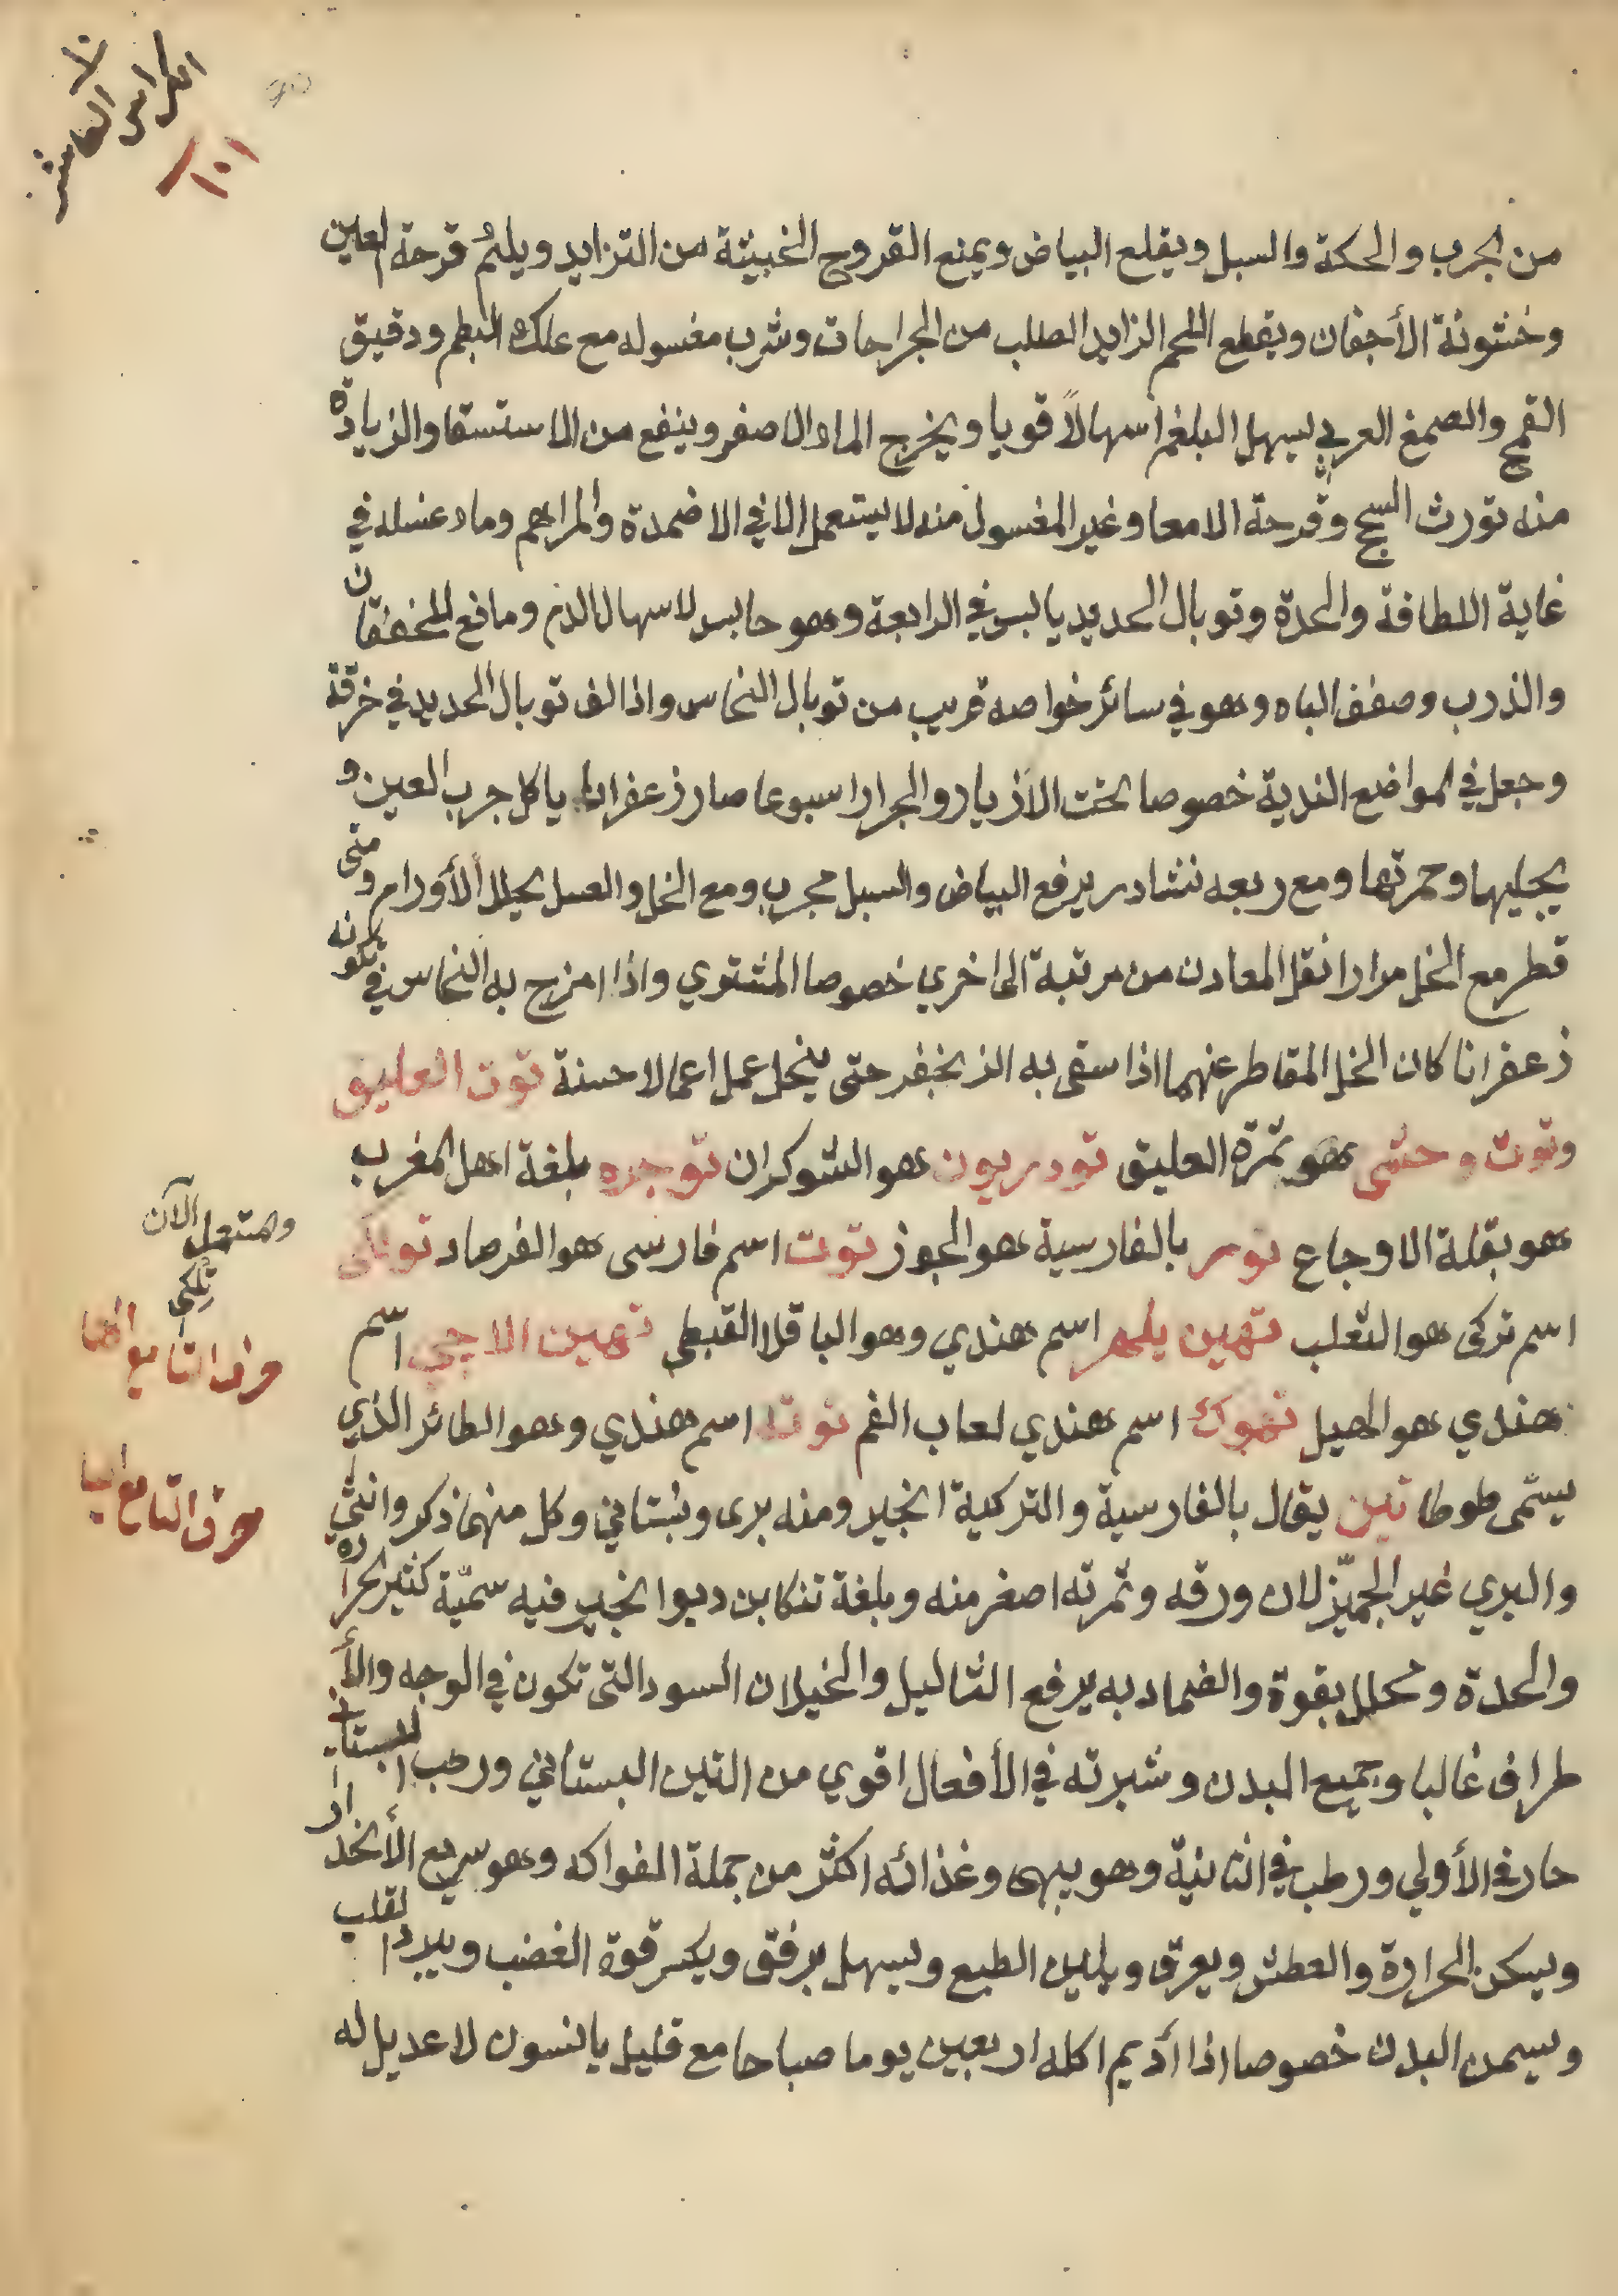 الكراس العاشر
١٠١
من الجرب والحكة والسبل ويقلع البياض ويمنع القروح الخبيثة من التزايد ويلئم قرحة العين
وخشونة الأجفان ويقطع اللحم الزايد الصلب من الجراحات وشرب مغسوله مع علك البطم ودقيق
القمح والصمغ العربي يسهل البلغم اسهالاً قويا ويخرج الماء الاصفر وينفع من الاستسقا والزيادة
منه تورث السحج وقرحة الامعا وغير المغسول منه لا يستعمل الا في الاضمدة والمراهم وماء غسله في
غاية اللطافة والحدة وتوبال الحديد يابس في الرابعة وهو حابس لاسهال الدم ومانع للخفقان
والذرب وضعف الباه وهو في سائر خواصه قريب من توبال النحاس واذا لف توبال الحديد في خرقة
وجعل في المواضع الندية خصوصا تحت الأزيار والجرار اسبوعا صار زعفرانا ياكل جرب العين و
يجليها وحمرتها ومع ربعه نشادر يرفع البياض والسبل مجرب ومع الخل والعسل يحلل الأورام ومتى
قطر مع الخل مرارا نقل المعادن من مرتبة الى اخري خصوصا المشتوي واذا امزج به النحاس في تكونه
زعفرانا كان الخل المقاطر عنهما اذا سقى به الزنجفر حتى ينحل عمل اعمالا حسنة توت العليق
وتوت وحشى هو ثمرة العليق تودريون هو الشوكران توجره بلغة اهل المغرب
هو بقلة الاوجاع تور بالفارسية هو الجوز توت اسم فارسى هو الفرصاد
اسم تركى هو الثعلب تهين يلهر اسم هندي وهو الباقلا القبطى تهين الاجي اسم
هندي هو الهيل تهوك اسم هندي لعاب الفم توتا اسم هندي وهو الطائر الذي
يسمّى طوطا تين يقال بالفارسية والتركية انجير ومنه برى وبستاني وكل منهما ذكر وانثي
والبري غير الجميّز لان ورقه وثمرته اصغر منه وبلغة تنكابن ديو انجير فيه سميّة كثير الحرارة
والحدة ومحلل بقوة والضماد به يرفع الثاليل والخيلان السود التى تكون في الوجه والأ
طراف غالبا وجميع البدن وشبرته في الأفعال اقوي من التين البستاني ورطب البستاني
حار في الأولي ورطب في الثانية وهو يبهى وغذائه اكثر من جملة الفواكه وهو سريع الأنخدار
ويسكن الحرارة والعطش ويعرق ويلين الطبع ويسهل برفق ويكسر قوة الغضب ويبرد القلب
ويسمن البدن خصوصا اذا أديم اكله اربعين يوما صباحا مع قليل يانسون لا عديل له
ومستعمل الآن
تلكي
حرف التا مع الها
حرف التا مع اليا